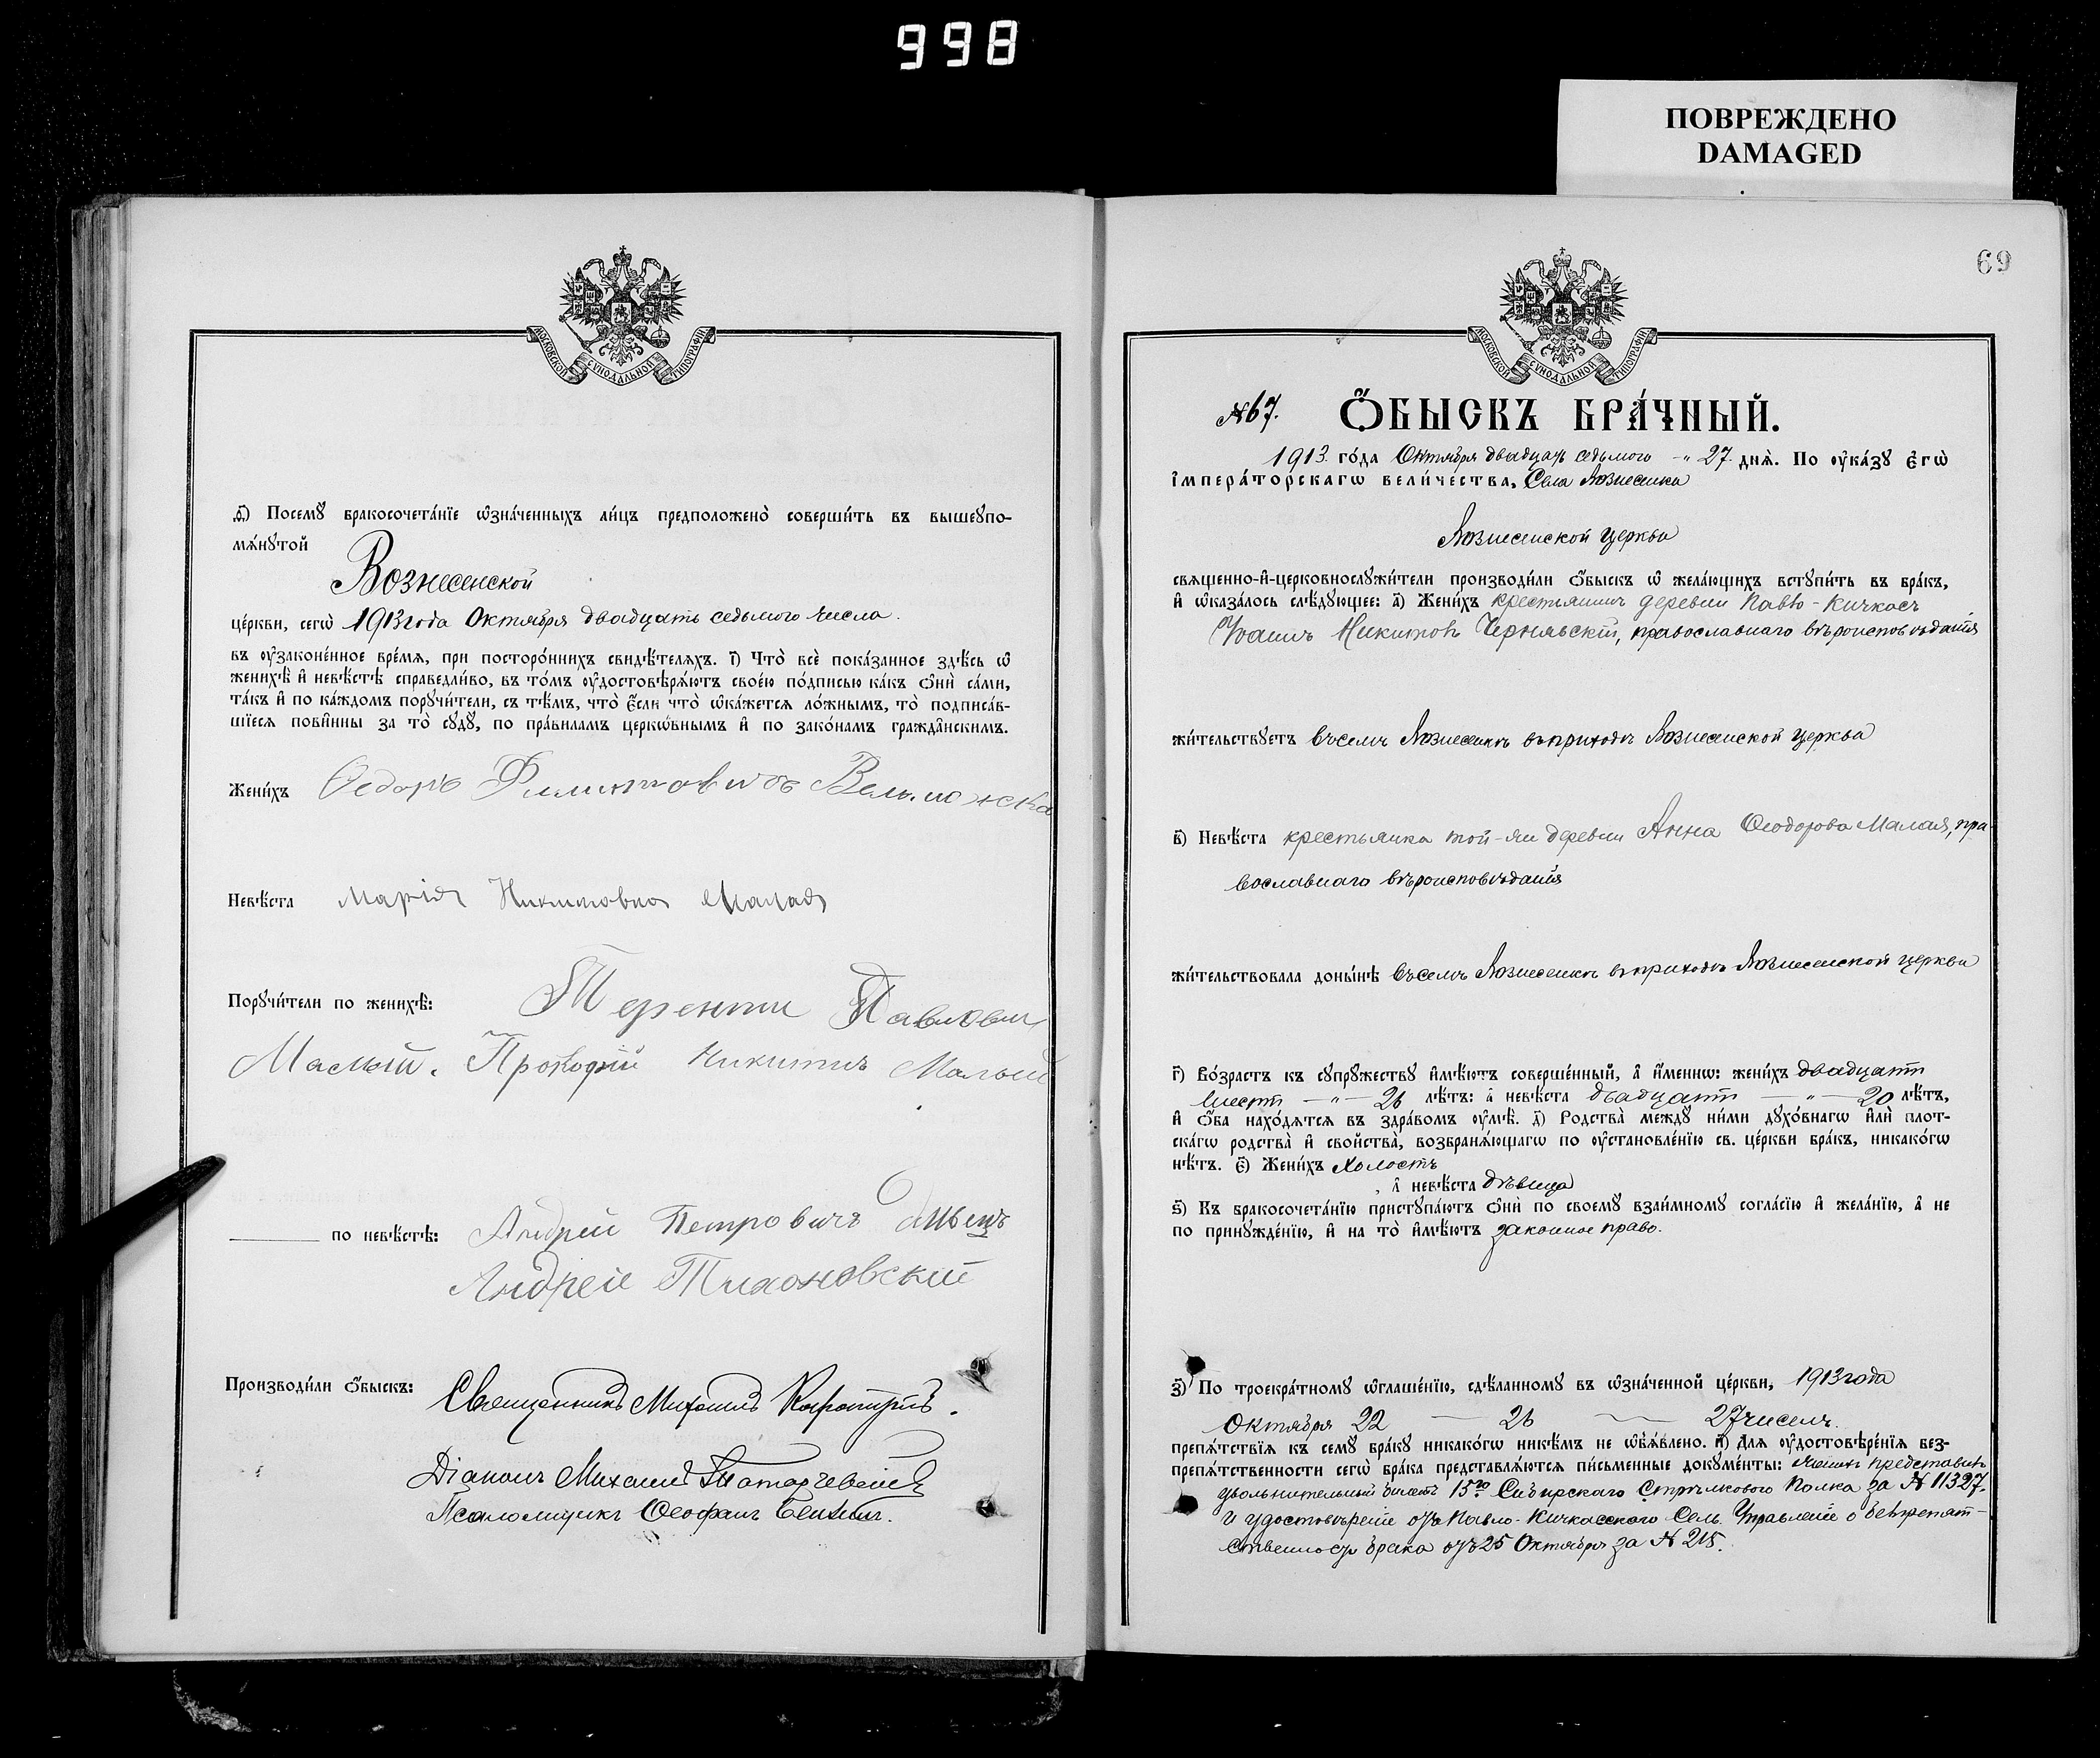 998
ПОВРЕЖДЕНО
DAMAGED
МОСКОВСКОЙ СУНОДАЛЬНОЙ ТИПОГРАФІИ
ѳ҃) Посемꙋ бракосочета́нїе ѡ҆зна́ченныхъ ли́цъ предположено̀ соверши́ть въ вышеꙋпо-
мѧ́нꙋтой
Вознесенской
це́ркви, сегѡ̀ 1913 года Октября двадцать седьмого числа.
въ ᲂу҆законе́нное вре́мѧ, при посторо́ннихъ свидѣ́телѧхъ. і҃) Что̀ всѐ пока́занное здѣ́сь ѡ҆
женихѣ̀ и҆ невѣ́стѣ справедли́во, въ то́мъ ᲂу҆достовѣрѧ́ютъ свое́ю по́дписью ка́къ ѻ҆нѝ са́ми,
та́къ и҆ по ка́ждомъ порꙋчи́тели, съ тѣ́мъ, что̀ є҆́сли что̀ ѡ҆ка́жетсѧ ло́жнымъ, то̀ подписа́в-
шїесѧ пови́нны за то̀ сꙋдꙋ̀, по пра́виламъ церко́внымъ и҆ по зако́намъ гражда́нскимъ.
Жени́хъ Ѳедоръ Филиповичъ
Невѣ́ста Марія Никитовна Малая
Порꙋчи́тели по женихѣ̀: Терентий Павлович
Малый. Прокофий Никитичъ Малый
по невѣ́стѣ: Андрей Петровичъ
Андрей Тихоновский
Производи́ли ѻ҆́быскъ: Священникъ Михаилъ
Діаконъ Михаилъ
Псаломщикъ Ѳеофанъ
69
МОСКОВСКОЙ СУНОДАЛЬНОЙ ТИПОГРАФІИ
№ 67. Ѻ҆́БЫСКЪ БРА́ЧНЫЙ.
1913 го́да Октября двадцать седьмого —„ 27 днѧ̀. По ᲂу҆ка́зꙋ є҆гѡ̀
і҆мпера́торскагѡ вели́чества, Села Вознесенка
Вознесенской церкви
свѧщенно-и҆-церковнослꙋжи́тели производи́ли ѻ҆́быскъ ѡ҆ жела́ющихъ встꙋпи́ть въ бра́къ,
и҆ ѡ҆каза́лось слѣ́дꙋющее: а҃) Жени́хъ крестьянинъ деревни Павло-Кичкасъ
Іоаннъ Никитовъ Чернявскій, православнаго вѣроисповѣданія
жи́тельствꙋетъ въ селѣ Вознесенкѣ въ приходѣ Вознесенской церкви
в҃) Невѣ́ста крестьянка той-же деревни Анна Ѳеодорова Малая, пра-
вославнаго вѣроисповѣданія
жи́тельствовала доны́нѣ въ селѣ Вознесенкѣ въ приходѣ Вознесенской церкви
г҃) Во́зрастъ къ сꙋпрꙋ́жествꙋ и҆мѣ́ютъ соверше́нный, а҆ и҆́менно: жени́хъ двадцать
шесть —„— 26 лѣ́тъ: а҆ невѣ́ста двадцать —„— 20 лѣ́тъ,
и҆ ѻ҆́ба нахо́дѧтсѧ въ здра́вомъ ᲂу҆мѣ̀. д҃) Родства̀ междꙋ ни́ми дꙋхо́внагѡ и҆лѝ плот-
ска́гѡ родства̀ и҆ сво́йства, возбранѧ́ющагѡ по ᲂу҆становле́нїю св. це́ркви бра́къ, никако́гѡ
нѣ́тъ. є҃) Жени́хъ холостъ
, а҆ невѣ́ста дѣвица
ѕ҃) Къ бракосочета́нїю пристꙋпа́ютъ ѻ҆нѝ по своемꙋ̀ взаи́мномꙋ согла́сїю и҆ жела́нїю, а҆ не
по принꙋжде́нїю, и҆ на то̀ и҆мѣ́ютъ законное право.
з҃) По троекра́тномꙋ ѡ҆глаше́нїю, сдѣ́ланномꙋ въ ѡ҆зна́ченной це́ркви, 1913 года
Октября 22 — 26 — 27 чиселъ
препѧ́тствїѧ къ семꙋ̀ бра́кꙋ никако́гѡ никѣ́мъ не ѡ҆б̾ѧ́влено. и҃) Длѧ ᲂу҆достовѣре́нїѧ без-
препѧ́тственности сегѡ̀ бра́ка представлѧ́ютсѧ пи́сьменные докꙋме́нты: Женихъ представилъ
увольнительный билетъ 15го Сибирскаго Стрѣлкового Полка за № 11327.
и удостовѣреніе отъ Павло-Кичкасскаго Сель. Управленіе о безпрепят-
ственности брака отъ 25 Октября за № 215.